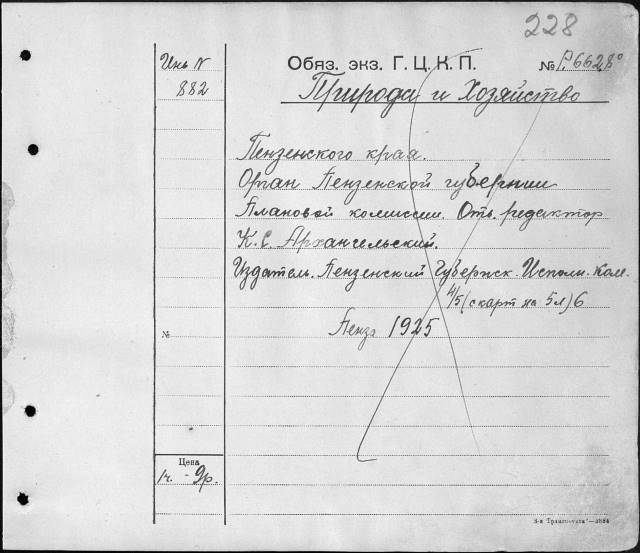 228
Инв N
882
Обяз. экз. Г. Ц. К. П. № Р.6628°
Природа и Хозяйство
Пензенского края.
Орган Пензенской губернии
Плановой комиссии. Отв. редактор
К. С. Архангельский.
Издатель. Пензенский Губернск. Исполн. Ком.
4/5 (с карт на 5 л) 6
Пенза 1925
№
Цена
1ч. - 9р.